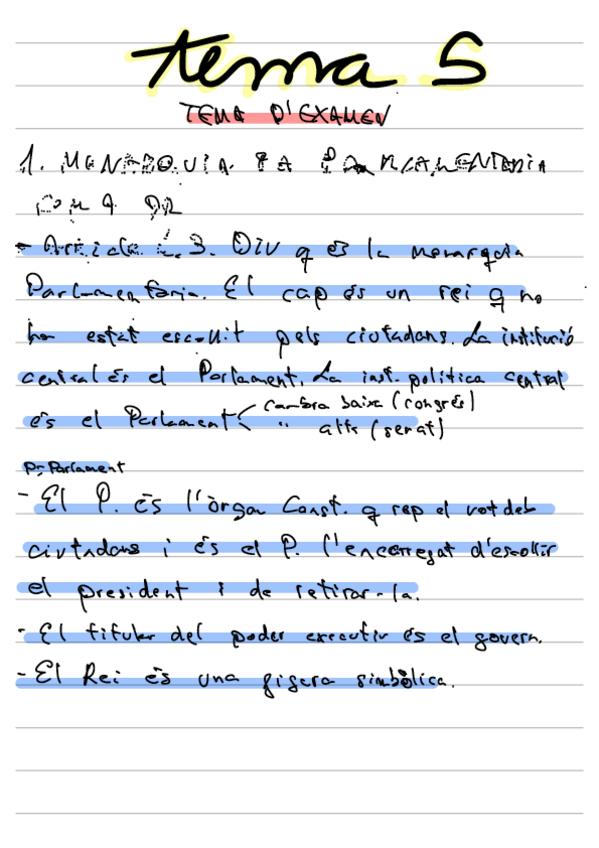 tema 5
TEMA D'EXAMEN
1. MONARQUIA PARLAMENTARIA
COM A
- Article 1.3. Diu q és la monarquia
Parlamentaria. El cap és un rei q no
ha estat escollit pels ciutadans. La institució
central és el Parlament. La inst. política central
és el Parlament < cambra baixa (congrés)
" alta (senat)
P: Parlament
- El P. és l'òrgan Const. q rep el vot dels
ciutadans i és el P. l'encarregat d'escollir
el president i de retirar-la.
- El titular del poder executiu és el govern.
- El Rei és una figura simbòlica.